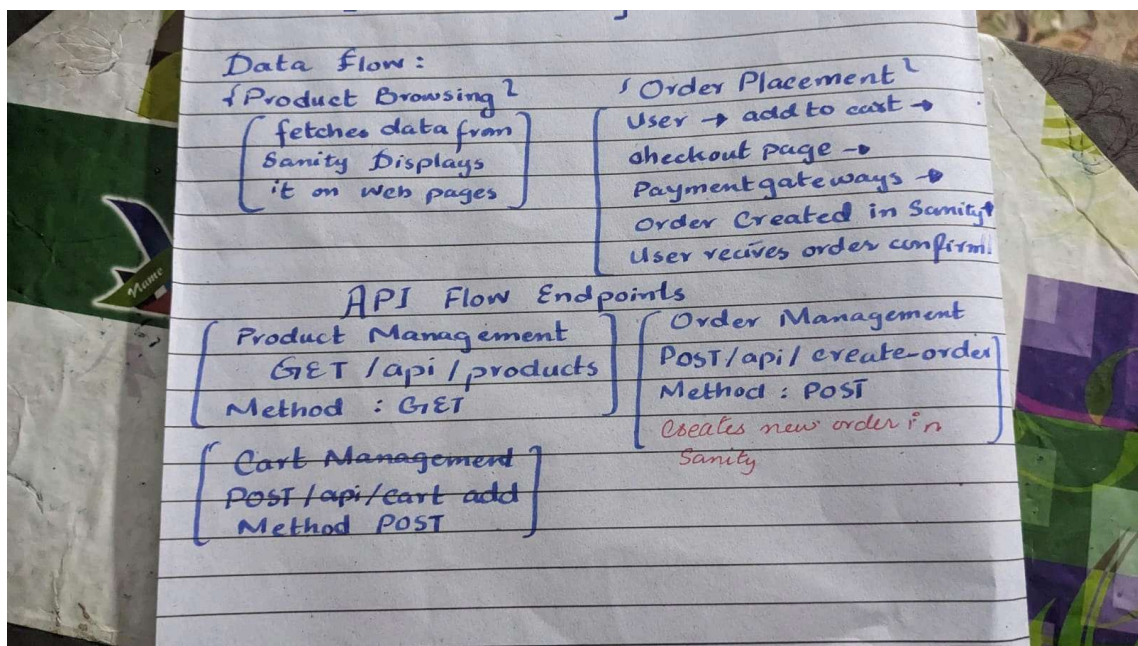 Data Flow:
{Product Browsing}
fetches data from
Sanity Displays
it on web pages
{Order Placement}
User → add to cart →
checkout page →
Payment gateways →
Order Created in Sanity
User recives order confirm
API Flow Endpoints
Product Management
GET /api/products
Method : GET
Order Management
POST/api/create-order
Method : POST
Creates new order in
Sanity
Cart Management
POST /api/cart add
Method POST
Name